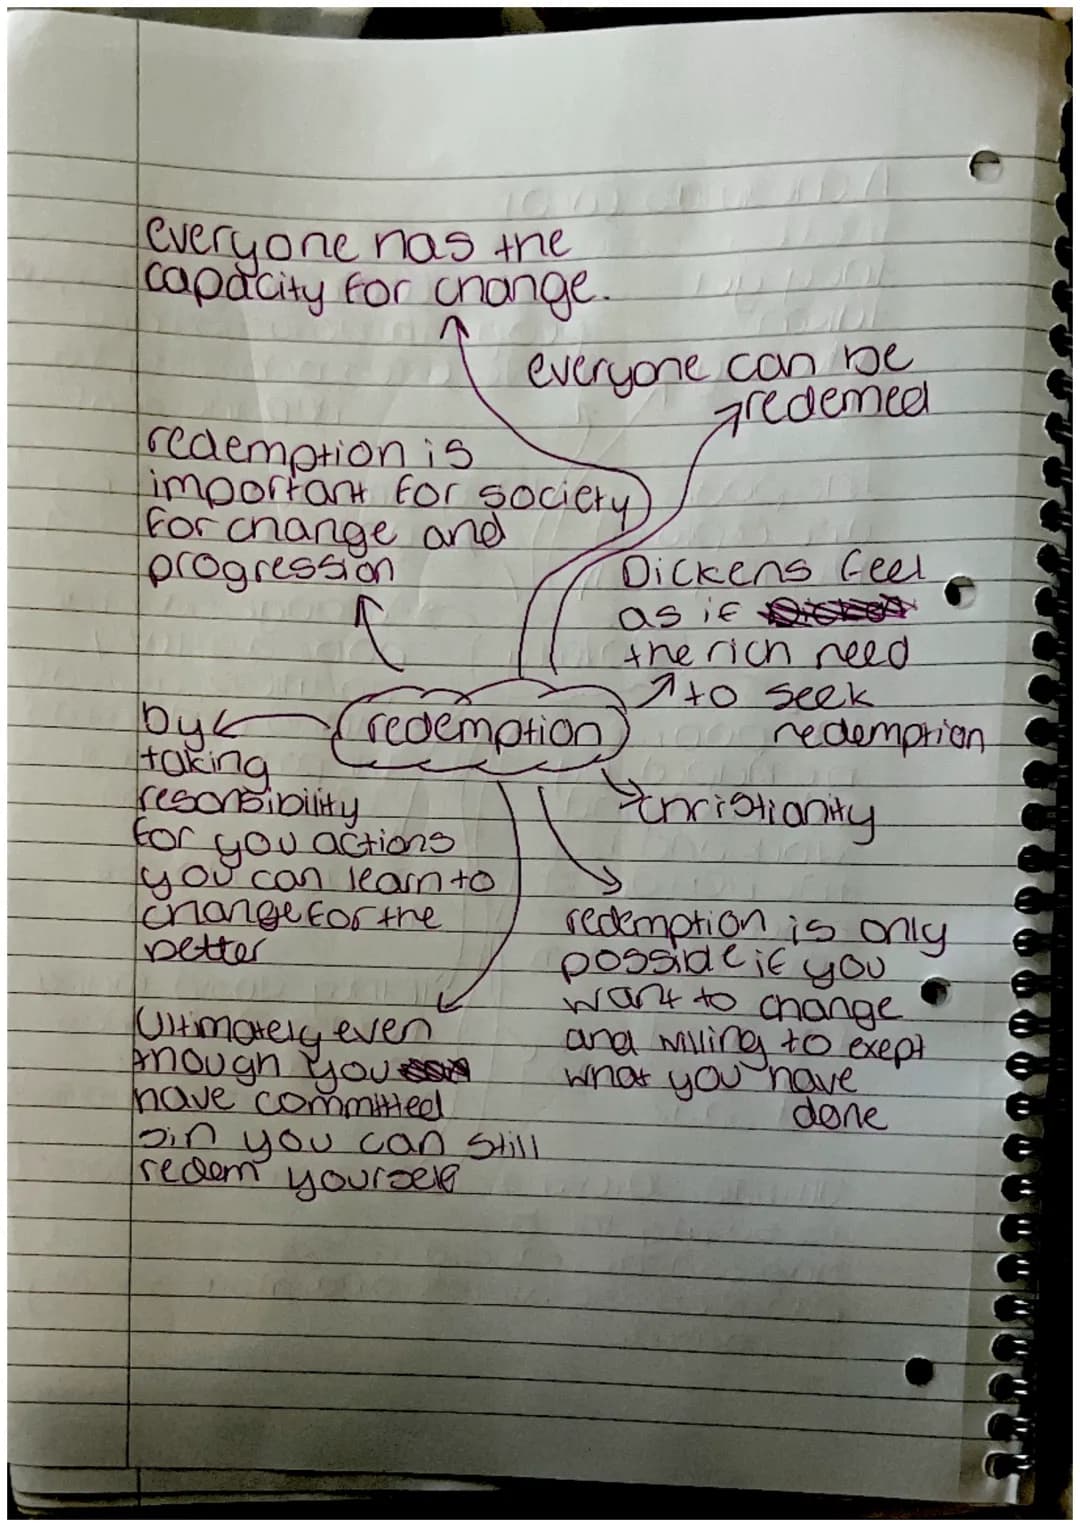 everyone has the
capacity for change.
everyone can be
redemed
redemption is
important for society
for change and
progression
Dickens feel
as if
the rich need
to seek
redemption
redemption
by
taking
resonsibility
for you actions
you can learn to
change for the
better
christianity
redemption is only
possible if you
want to change
and willing to exept
what you have
done
Ultimately even
though you
have committed
sin you can still
redem yourself